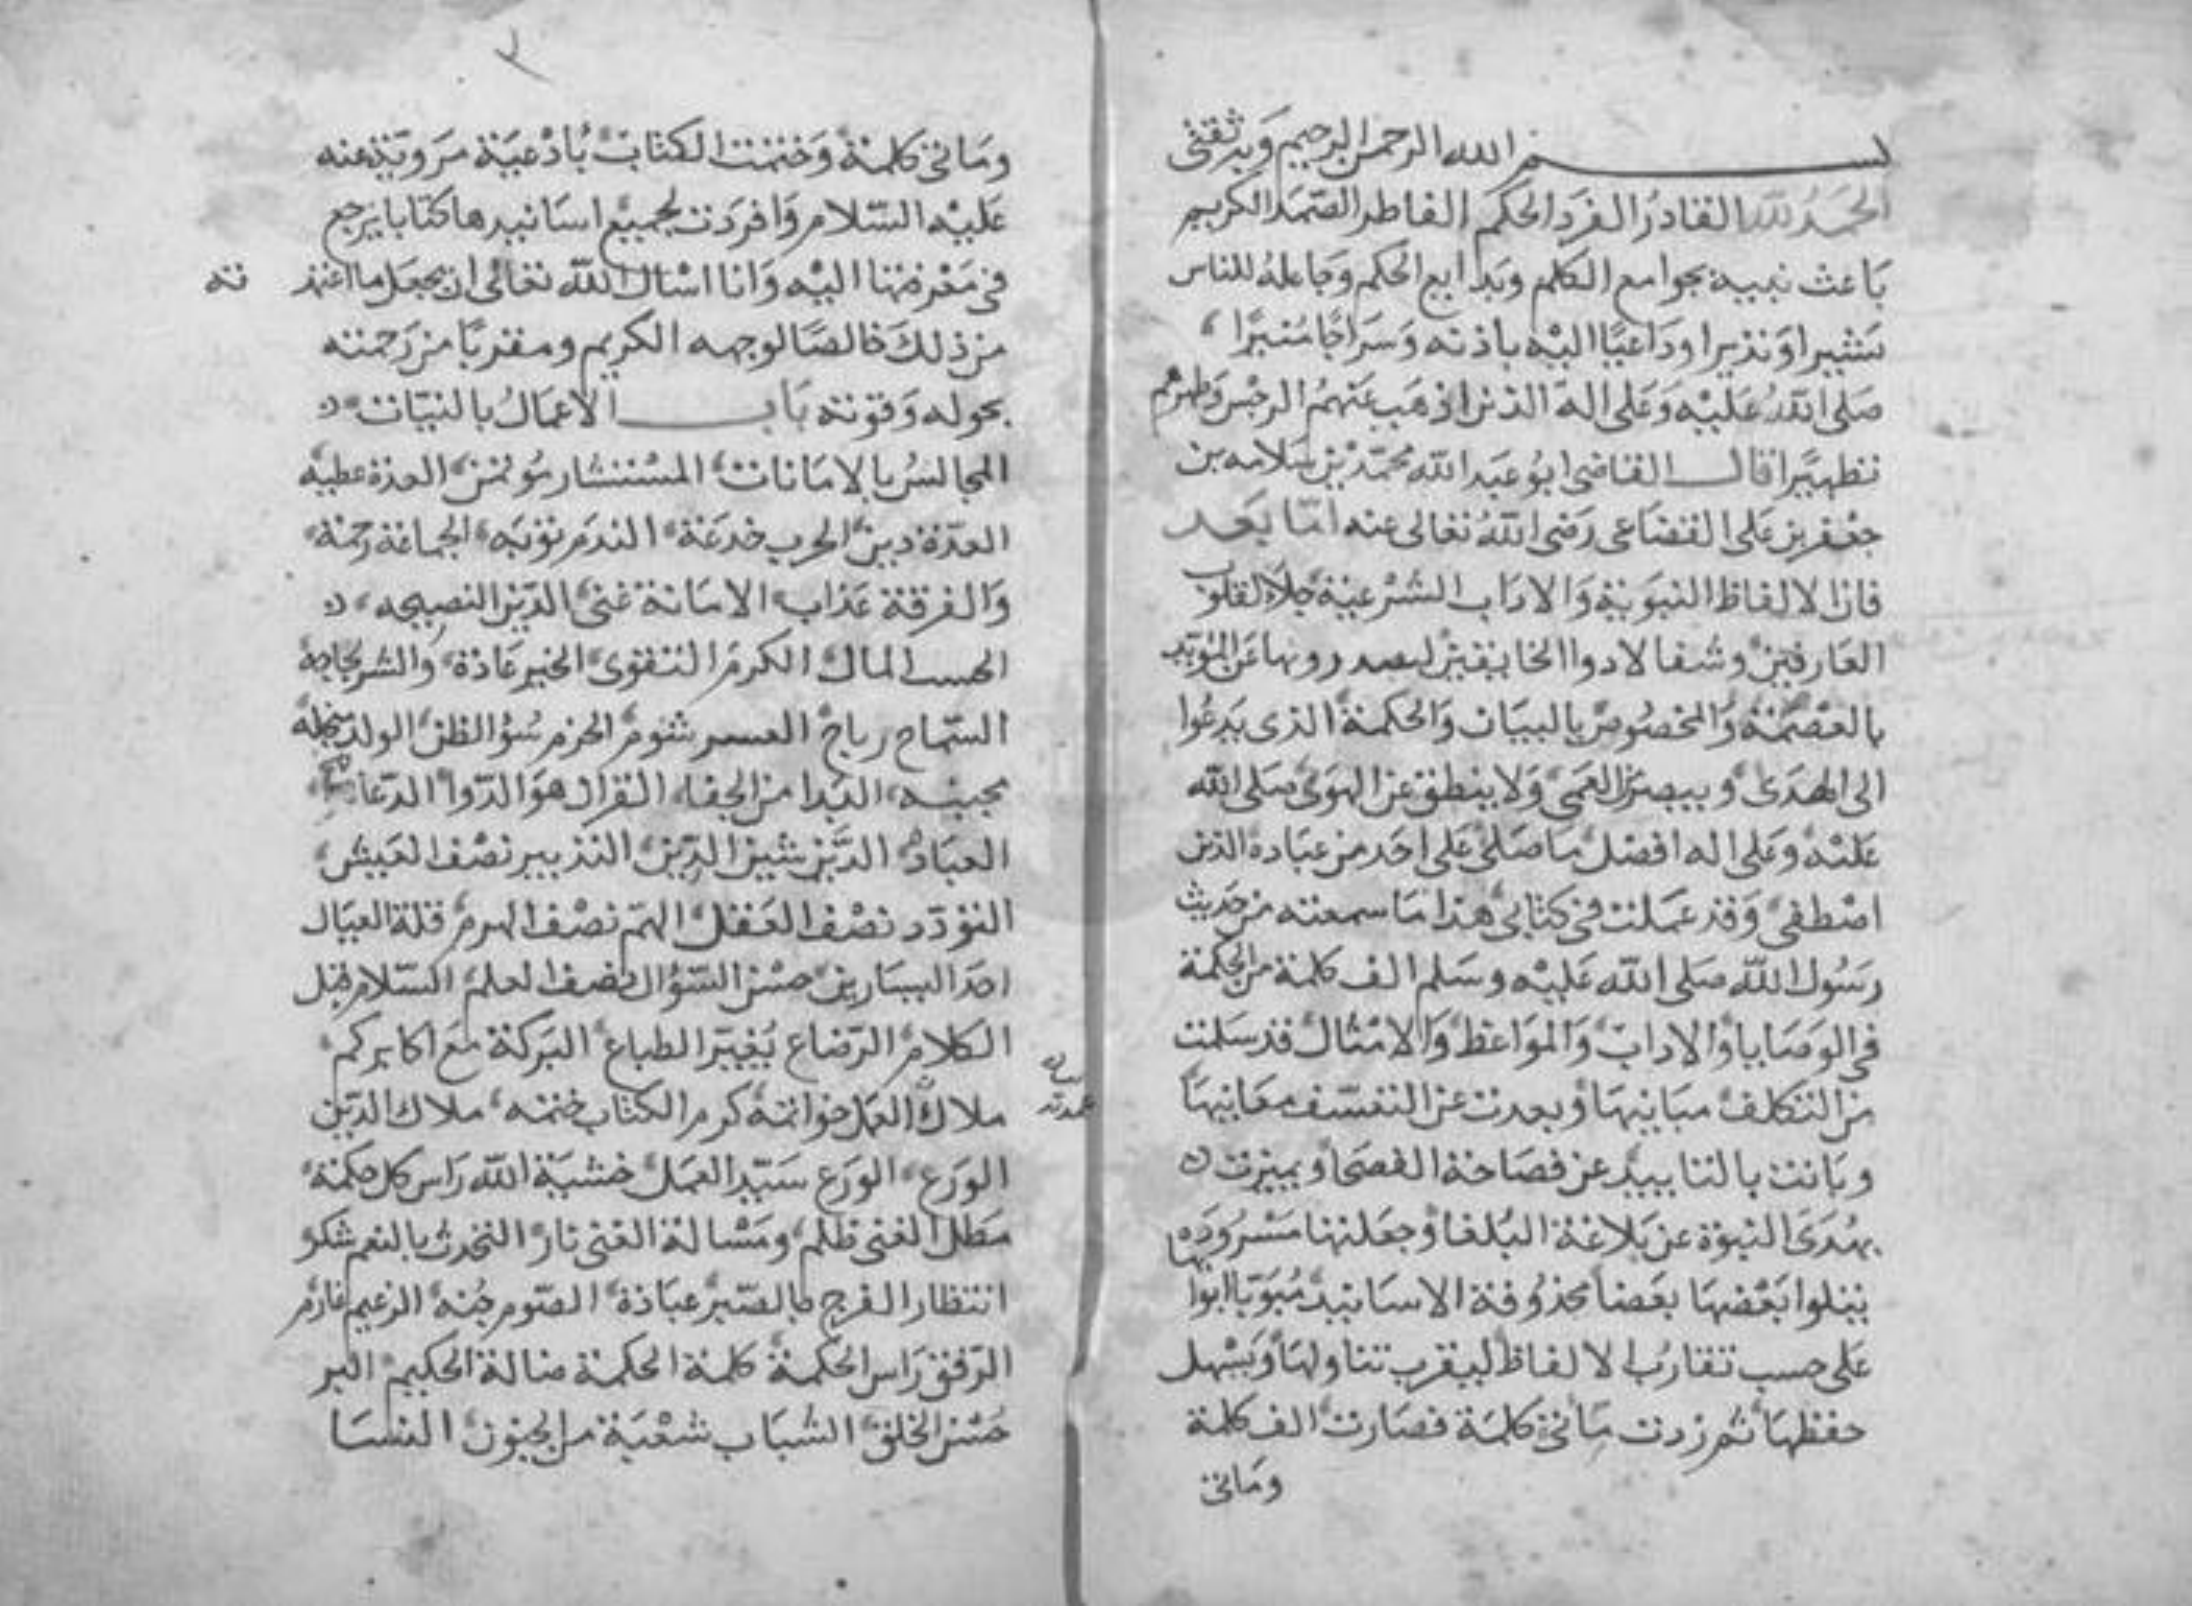 بسم الله الرحمن الرحيم وبه ثقتى
الحمد لله القادر الفرد الحكم الفاطر الصمد الكريم
باعث نبيه بجوامع الكلم وبدايع الحكم وجاعله للناس
بشيرا ونذيرا وداعيًا اليه باذنه وسراجًا منيرًا
صلى الله عليه وعلى اله الذين اذهب عنهم الرجس وطهرهم
تطهيرًا قال القاضى ابو عبد الله محمد بن سلامه بن
جعفر بن على القضاعى رضى الله تعالى عنه اما بعد
فان الالفاظ النبوية والاداب الشرعية جلاء لقلوب
العارفين وشفا لادوا الخايفين لصدورها عن المؤيد
بالعصمة والمخصوص بالبيان والحكمة الذى يدعوا
الى الهدى ويبصر من العمى ولا ينطق عن الهوى صلى الله
عليه وعلى اله افضل ما صلى على احد من عباده الذين
اصطفى وقد عملت فى كتابى هذا ما سمعته من حديث
رسول الله صلى الله عليه وسلم الف كلمة من الحكمة
فى الوصايا والاداب والمواعظ والامثال قد سلمت
من التكلف مبانيها وبعدت عن التعسف معانيها
وبانت بالتاييد عن فصاحة الفصحا وميزت
بهدى النبوة عن بلاغة البلغا وجعلتها مسرودة
يتلوا بعضها بعضا محذوفة الاسانيد مبوبا ابوابها
على حسب تقارب الالفاظ ليقرب تناولها ويسهل
حفظها ثم زدت مائتى كلمة فصارت الف كلمة
ومائتى
ومائتى كلمة وختمت الكتاب بادعية مروية عنه
عليه السلام وافردت لجميع اسانيدها كتابا يرجع
فى معرفتها اليه وانا اسال الله تعالى ان يجعل ما اعتمدته
من ذلك خالصًا لوجهه الكريم ومقربًا من رحمته
بحوله وقوته باب الاعمال بالنيات
المجالس بالامانات المستشار مؤتمن العدة عطية
العدة دين الحرب خدعة الندم توبه الجماعة رحمة
والفرقة عذاب الامانة غنى الدين النصيحه
الحسب المال الكرم التقوى الخير عادة والشر لجاجة
السماح رباح العسر شؤم الحزم سؤ الظن الولد مبخلة
مجبنه البذا من الجفاء القران هو الدوا الدعا هو
العبادة الدين شين الدين التدبير نصف العيش
التودد نصف العقل الهم نصف الهرم قلة العيال
احد اليسارين حسن السؤال نصف العلم السلام قبل
الكلام الرضاع يغير الطباع البركة مع اكابركم
ملاك العمل خواتمه كرم الكتاب ختمه ملاك الدين
الورع الورع سيد العمل خشية الله راس كل حكمة
مطل الغنى ظلم ومسالة الغنى نار التحدث بالنعم شكر
انتظار الفرج بالصبر عبادة الصوم جنه الزعيم غارم
الرفق راس الحكمة كلمة الحكمة ضالة الحكيم البر
حسن الخلق الشباب شعبة من الجنون النسا